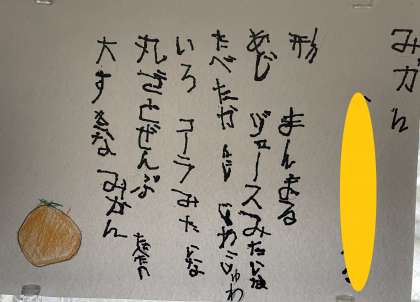 みかん
形 まんまる
あじ ジュースみたいな
たべたかんじ じゅわじゅわ
いろ コーラみたいな
丸ごとぜんぶ
大すきな みかん